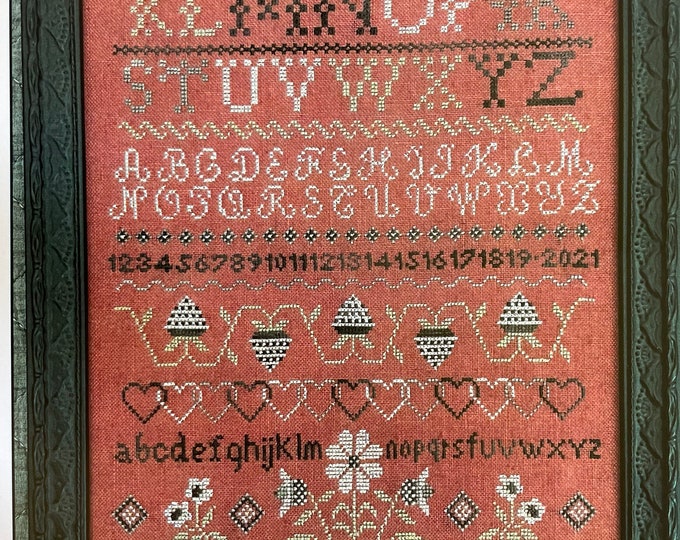 KLMNOPQR
STUVWXYZ
ABCDEFGHIJKLM
NOPQRSTUVWXYZ
12345678910111213141516171819·2021
abcdefghijklm nopqrstuvwxyz